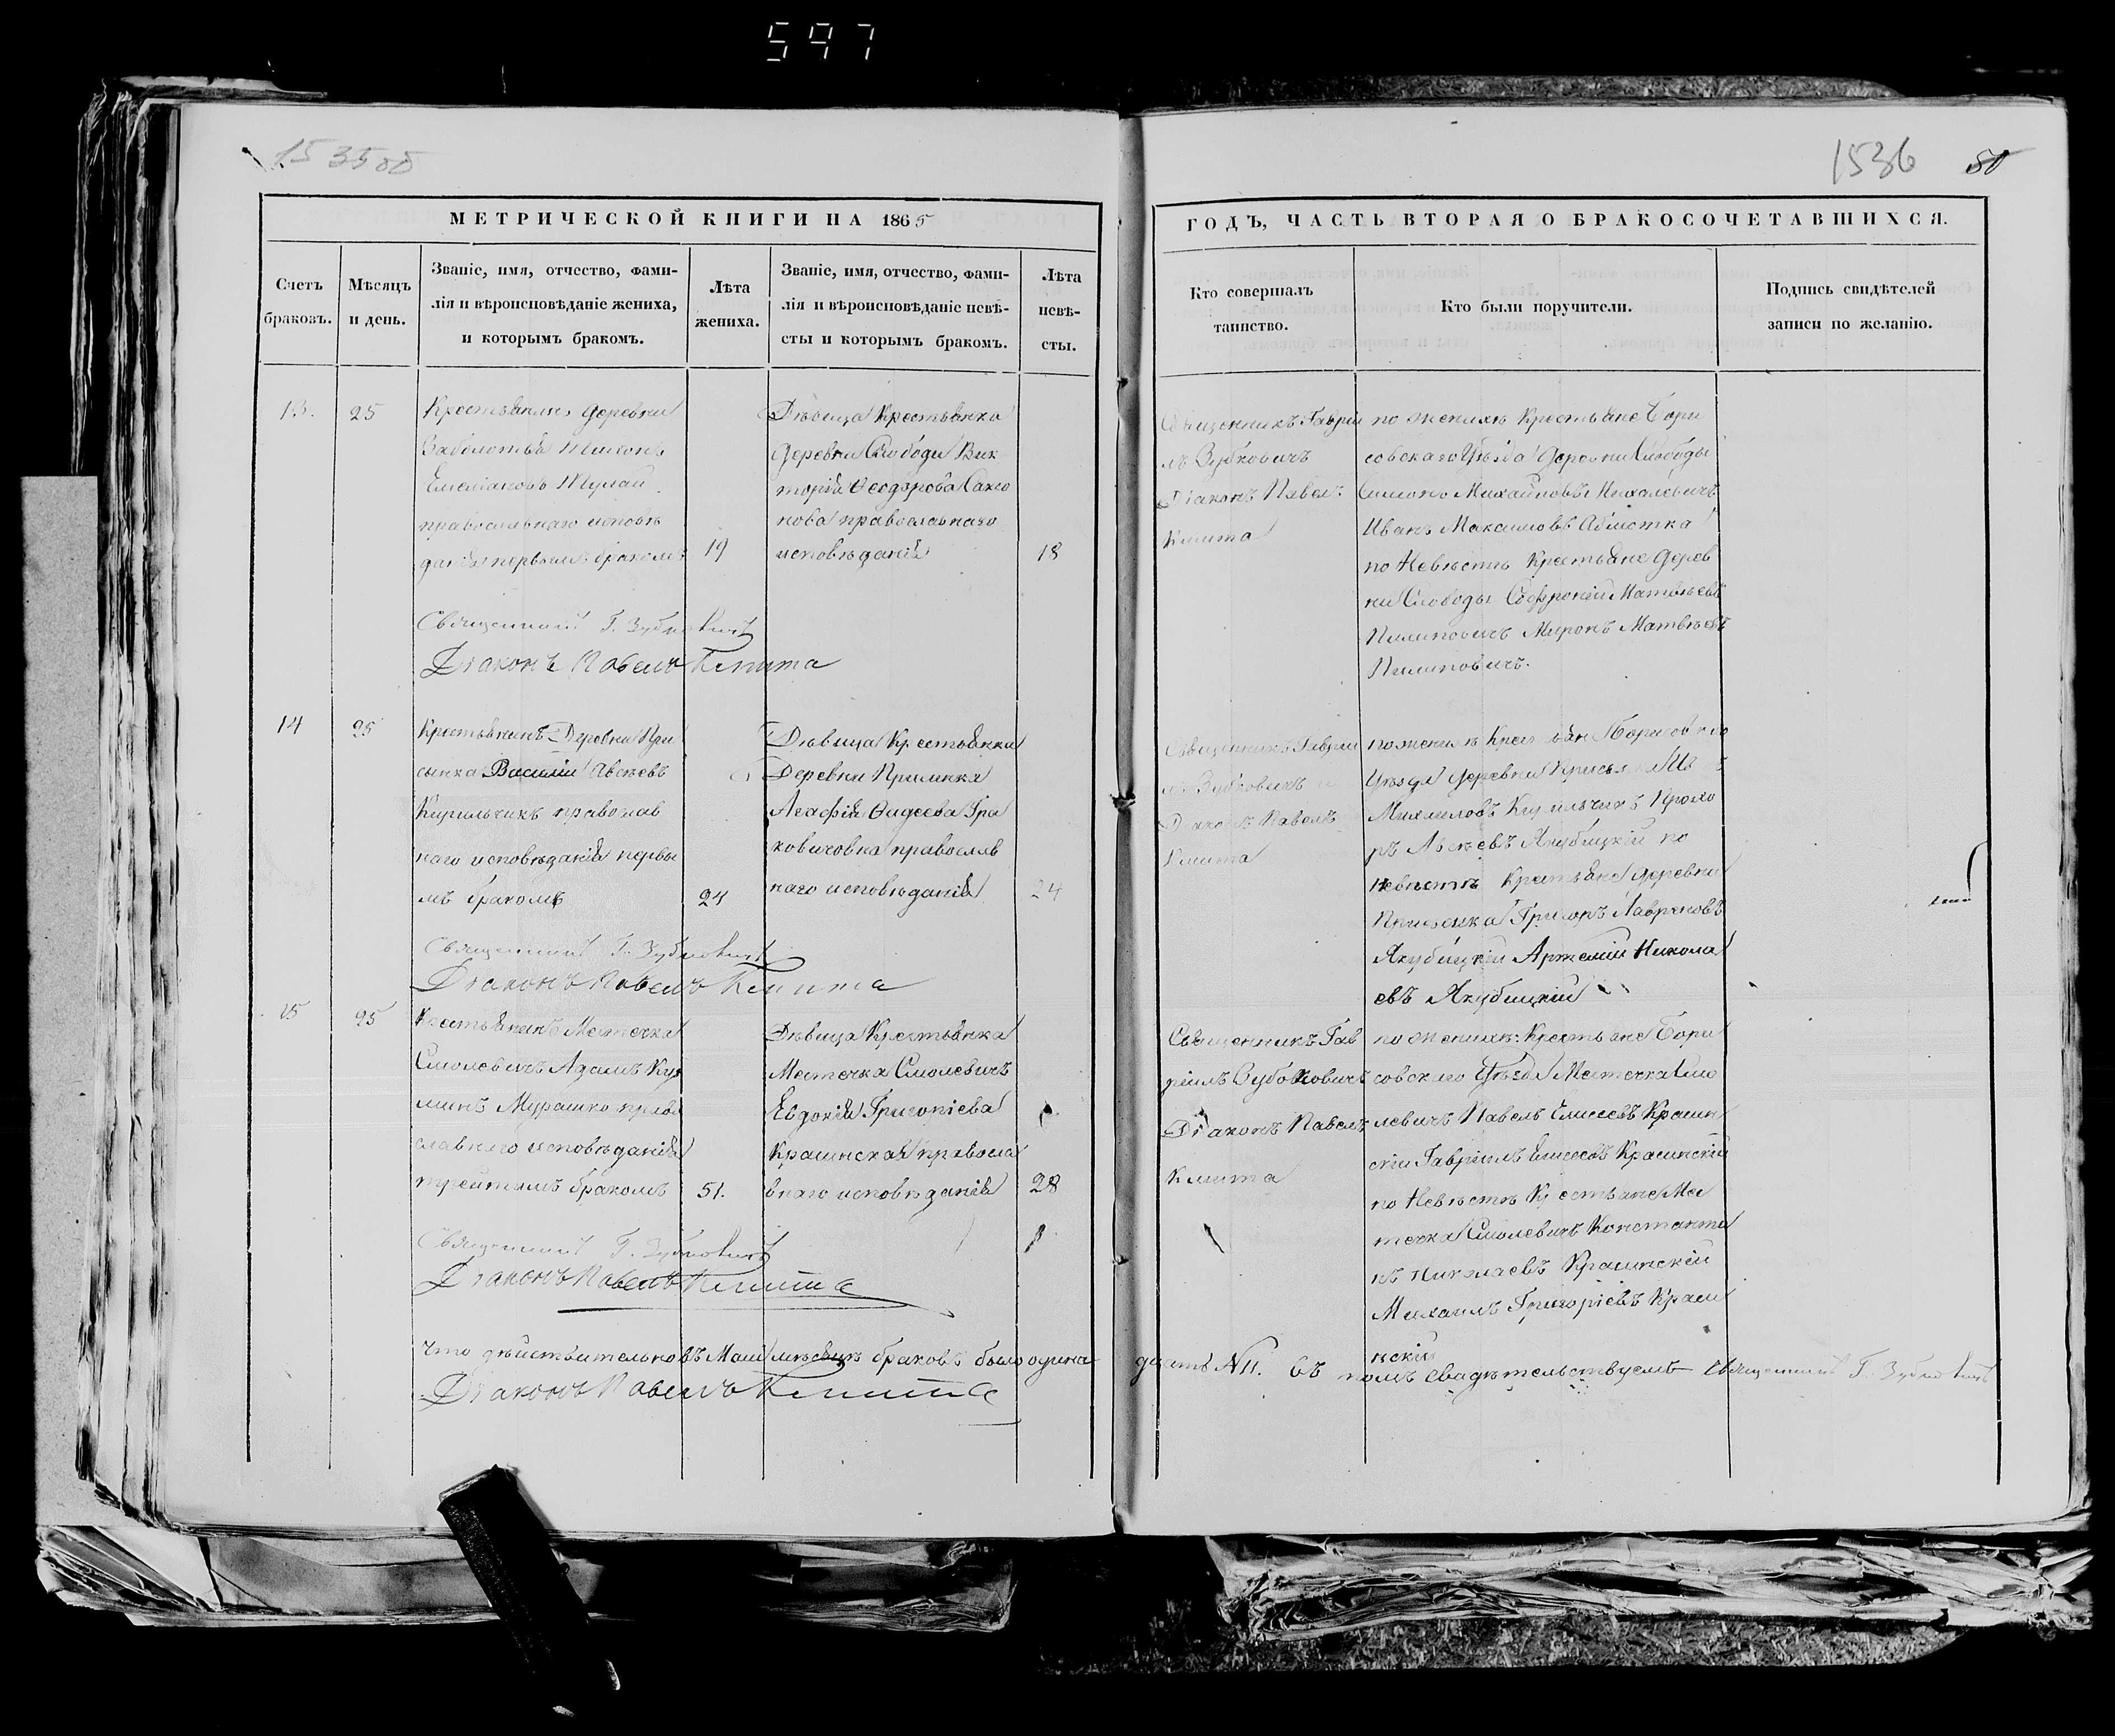 597
1535 об
1536 50
МЕТРИЧЕСКОЙ КНИГИ НА 1865
ГОДЪ, ЧАСТЬ ВТОРАЯ О БРАКОСОЧЕТАВШИХСЯ.
Счетъ
браковъ.
Мѣсяцъ
и день.
Званіе, имя, отчество, фами-
лія и вѣроисповѣданіе жениха,
и которымъ бракомъ.
Лѣта
жениха.
Званіе, имя, отчество, фами-
лія и вѣроисповѣданіе невѣ-
сты и которымъ бракомъ.
Лѣта
невѣ-
сты.
Кто совершалъ
таинство.
Кто были поручители.
Подпись свидѣтелей
записи по желанію.
13.
25
Крестьянинъ деревни
Заболотья Тихонъ
Емеліановъ
православнаго исповѣ
данія первымъ бракомъ
19
Дѣвица Крестьянка
деревни Слободы Вик
торія Ѳеодорова
православнаго
исповѣданія
18
Священникъ Гавріи
лъ Зубковичъ
Діаконъ Павелъ
Кмита
по женихѣ Крестьяне Бори
совскаго Уѣзда деревни Слободы
Симонъ Михайловъ Михалевичъ
Иванъ Максимовъ
по Невѣстѣ Крестьяне дерев
ни Слободы Софроній Матвѣевъ
Пилиповичъ Миронъ Матвѣевъ
Пилиповичъ.
Священникъ Г. Зубковичъ
Діаконъ Павелъ Кмита
14
25
Крестьянинъ Деревни При
сынка Василій Авсѣевъ
Кирильчикъ православ
наго исповѣданія первы
мъ бракомъ
24
Дѣвица Крестьянка
Деревни
Агафія Ѳадеева
православ
наго исповѣданія
24
Священникъ Гаврии
лъ Зубковичъ
Діаконъ Павелъ
Кмита
по женихѣ Крестьяне Борисовскаго
Уѣзда деревни
Михаиловъ Кирильчикъ Прохо
ръ Авсѣевъ Якубицкій по
Невѣстѣ Крестьяне деревни
Григоръ Лавреновъ
Якубицкій Артемій Никола
евъ Якубицкій
Священникъ Г. Зубковичъ
Діаконъ Павелъ Кмита
15
25
Крестьянинъ Местечка
Смолевичъ Адамъ Куз
минъ Мурашко право
славнаго исповѣданія
третимъ бракомъ
51.
Дѣвица Крестьянка
Местечка Смолевичъ
Евдокія Григоріева
Красинская правосла
внаго исповѣданія
28
Священникъ Гав
ріилъ Зубовковичъ
Діаконъ Павелъ
Кмита
по женихѣ: Крестьяне Бори
совскаго Уѣзда Местечка Смо
левичъ Павелъ Елисеевъ Красин
скій Гавріилъ Елисеевъ Красинскій
по Невѣстѣ Крестьяне Мес
течка Смолевичъ Константи
нъ Николаевъ Красинскій
Михаилъ Григоріевъ Краси
нскій
Священникъ Г. Зубковичъ
Діаконъ Павелъ Кмита
Что дѣйствительно въ Маіи мѣсяцѣ браковъ было одина-дцать №11. въ томъ свидѣтельствуемъ Священникъ Г. Зубковичъ
Діаконъ Павелъ Кмита